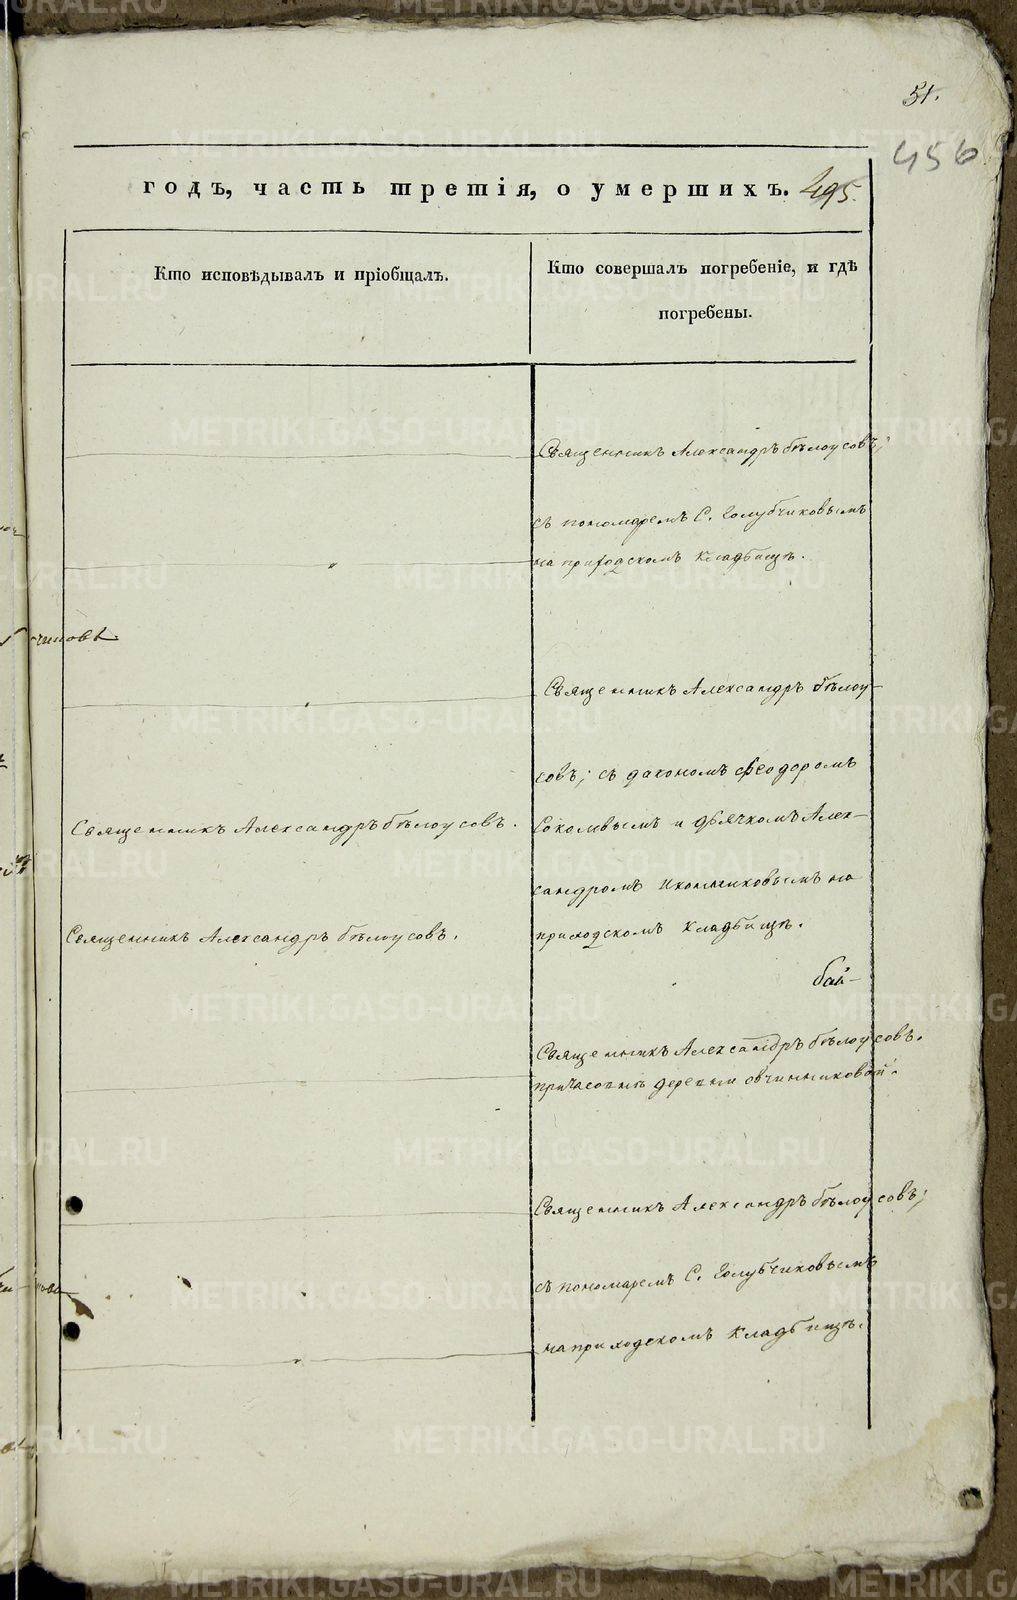 51.
456
годъ, часть третія, о умершихъ. 495.
Кто исповѣдывалъ и пріобщалъ.
Кто совершалъ погребеніе, и гдѣ
погребены.
Священникъ Александръ бѣлоусовъ;
съ пономаремъ С. Голубчиковымъ
на приходскомъ кладбищѣ.
чинова
Священникъ Александръ бѣлоу-
совъ; съ діакономъ Феодоромъ
Священникъ Александръ бѣлоусовъ.
и дьячкомъ Алек-
сандромъ Иконниковымъ на
Священникъ Александръ бѣлоусовъ.
приходскомъ кладбищѣ.
бай-
Священникъ Александръ бѣлоусовъ.
деревни овчинниковой
Священникъ Александръ бѣлоусовъ;
съ пономаремъ С. Голубчиковымъ
на приходскомъ кладбищѣ.
METRIKI.GASO-URAL.RU